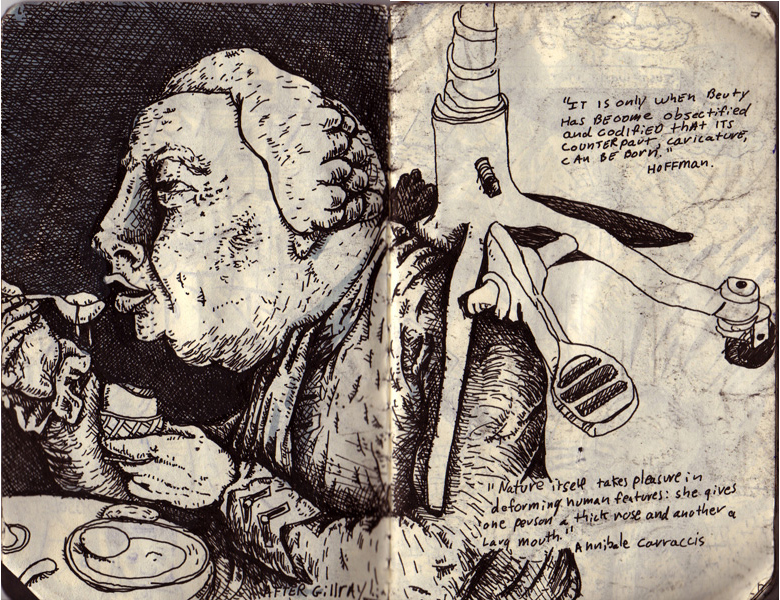 "IT is only when Beuty
Has BECOME obsectified
and codified that ITS
COUNTERpart, caricature,
CAN BE Born."
HOFFMAN.
"Nature itself takes pleasure in
deforming human features: she gives
one person a thick nose and another a
Larg mouth." Annibale Carraccis
AFTER Gillray